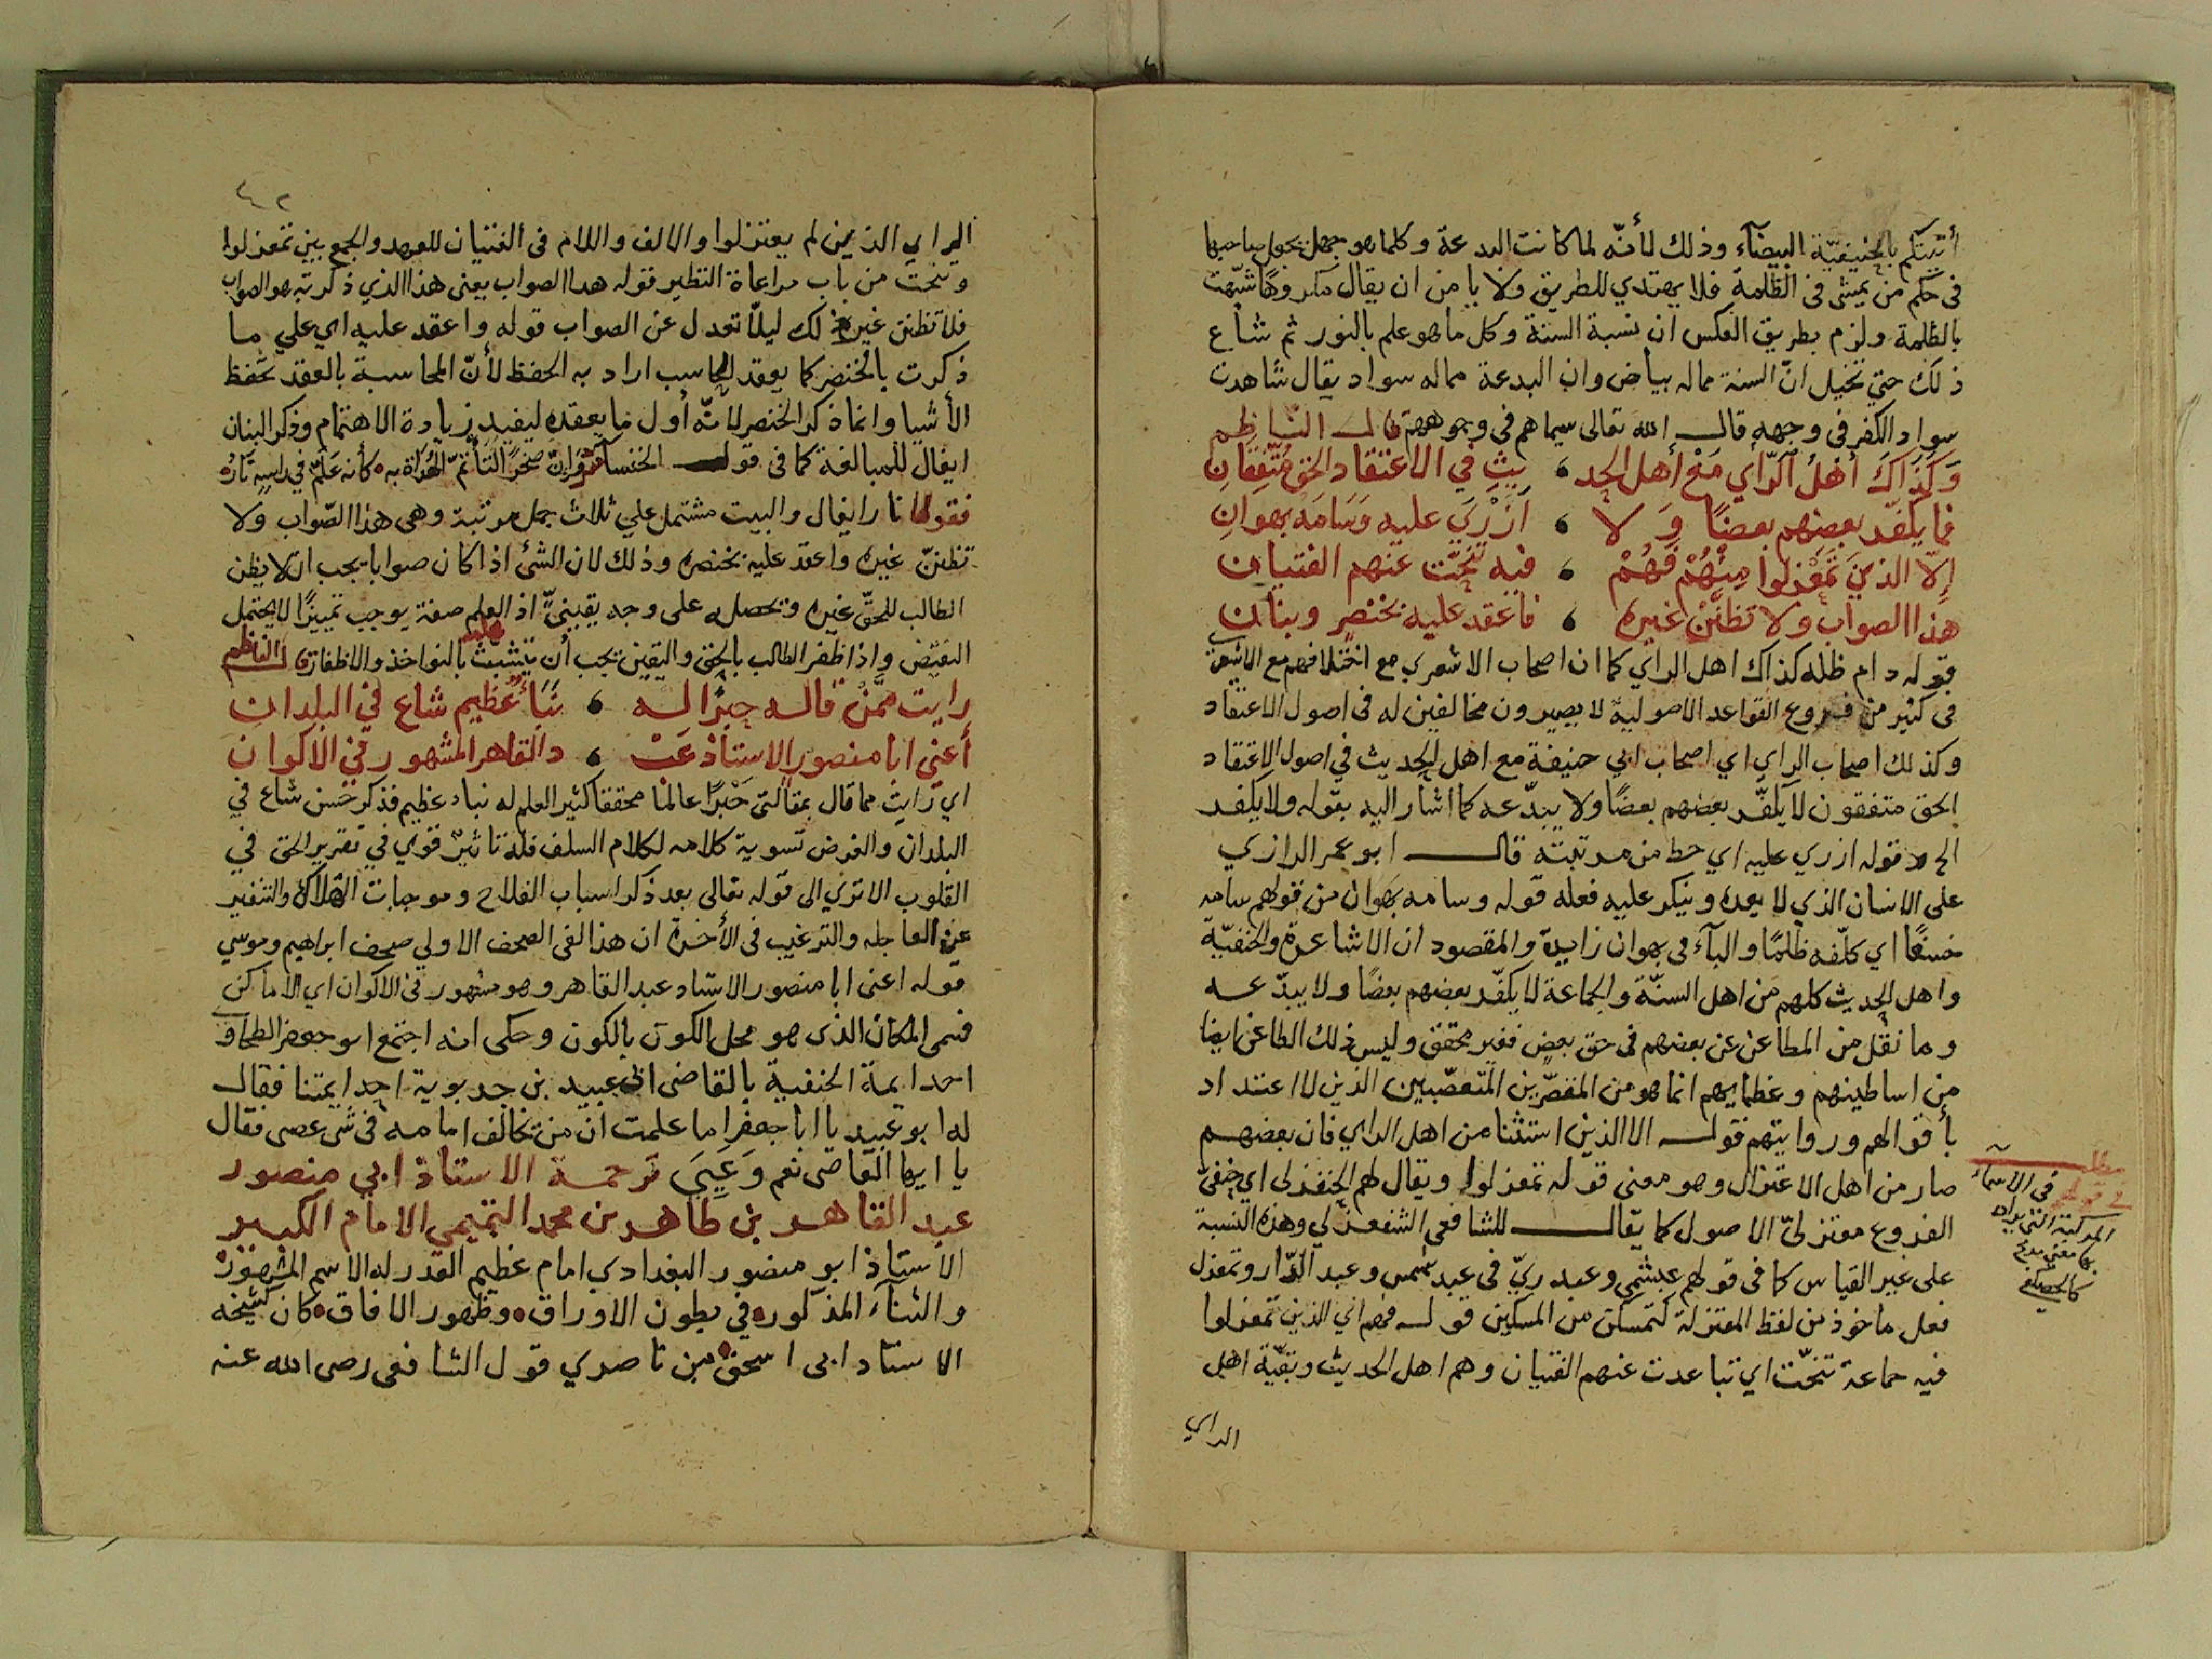 أتيتكم بالحنيفيّة البيضآء وذلك لأنّه لما كانت البدعة وكلما هو جهل يجعل صاحبها
فى حكم من يمشى فى الظلمة فلا يهتدي للطريق ولا يا من ان يقال مكروهًا شبّهت
بالظلمة ولزم بطريق العكس ان نسبة السنة وكل ما هو علم بالنور ثم شاع
ذلك حتي تخيل انّ السنة مما له بياض وان البدعة مما له سواد يقال شاهدت
سواد الكفر في وجهه قال الله تعالى سيماهم في وجوههم قال الناظم
وَكَذَاكَ أهلُ الرّاي مَعْ أهل الحد يثِ في الاعتقاد الحق مُتّفِقَانِ
فما يكفّر بعضهم بعضًا وَلا أزْرَي عليه وَسَامَهُ بهوانِ
إلّا الذينَ تَمَعْزلوا مِنْهُمْ فَهُمْ فيه تَنَحّت عنهم الفتيان
هذا الصواب ولا تظنّنْ غيره فاعقد عليه بخنصرٍ وبنان
قوله دام ظله كذاك اهل الراي كما ان اصحاب الاشعري مع اختلافهم مع الاشعري
فى كثير من فروع القواعد الاصولية لا يصيرون مخالفين له فى اصول الاعتقاد
وكذلك اصحاب الراي اي اصحاب ابي حنيفة مع اهل الحديث في اصول الاعتقاد
الحق متفقون لا يكفّر بعضهم بعضًا ولا يبدّعه كما اشار اليه بقوله ولا يكفر
الخ قوله ازري عليه اي حط من مرتبته قال ابو عمر الرازي
على الانسان الذي لا يعده وينكر عليه فعله قوله وسامه بهوان من قولهم سامه
خسفًا اي كلّفه ظلمًا والبآء فى بهوان زايدة والمقصود ان الاشاعرة والحنفيّة
واهل الحديث كلهم من اهل السنّة والجماعة لا يكفّر بعضهم بعضًا ولا يبدّعه
وما نقل من المطاعن عن بعضهم فى حق بعضٍ فغير محقق وليس ذلك الطاعن ايضا
من اساطينهم وعظمايهم انما هو من المقصّرين المتعصّبين الذين لا اعتداد
بأقوالهم ورواياتهم قوله الا الذين استثنا من اهل الراي فان بعضهم
صار من اهل الاعتزال وهو معنى قوله تمعزلوا ويقال لهم الحنفزلى اي حنفىّ
الفروع معتزلىّ الاصول كما يقال للشافعى الشفعزلي وهذه النسبة
على غير القياس كما فى قولهم عبشمي وعبدريّ فى عبد شمس وعبد الدّار وتمعزل
فعل ماخوذ من لفظ المعتزلة كتمسكن من المسكين قوله فهم اي الذين تمعزلوا
فيه جماعة تنحّت اي تباعدت عنهم الفتيان وهم اهل الحديث وبقيّة اهل
الراي
فى الاسماء
المركبة التى يراد
بها معنى
٤٢
الراي الذين لم يعتزلوا والالف واللام فى الفتيان للعهد والجمع بين تمعزلوا
وتنحت من باب مراعاة النظير قوله هدا الصواب يعنى هذا الذي ذكرته هو الصواب
فلا تظنن غير ذلك ليلّا تعدل عن الصواب قوله واعقد عليه اي علي ما
ذكرت بالخنصر كما يعقد المحاسب اراد به الحفظ لأنّ المحاسبة بالعقد تحفظ
الأشيا وانما ذكر الخنصر لانّه أول ما يعقده ليفيد زيادة الاهتمام وذكر البنان
ايغال للمبالغة كما فى قول الخنسآ وَإِنّ صخرًا لتأتمّ الهُدَاة به كأنه عَلَمٌ في راسِهِ نَارُ
فقولها نار ايغال والبيت مشتمل علي ثلاث جمل مرتبة وهى هذا الصّواب ولا
تظننّ غيره واعقد عليه بخنصره وذلك لان الشئ اذا كان صوابا يجب ان لا يظن
الطالب للحقّ غيره وتحصل له على وجه يقينىّ اذ العلم صفة يوجب تمييزًا لا يحتمل
النقيّض واذا ظفر الطالب بالحق واليقين يجب أن يتشبّث بالنواخذ والاظفار قال الناظم
رايت ممَّنْ قاله حِبْرًا له نَبَأٌ عظيم شاع في البلدان
أعنى ابا منصورٍ الاستاذ عَبْ دالقاهر المشهور في الأكوان
اي رايت مما قال بمقالتى حَبْرًا عالمًا محققا كثير العلم له نباء عظيم فذكر حَسن شاع في
البلدان والغرض تسوية كلامه لكلام السلف فله تاثيرٌ قوي في تقرير الحق في
القلوب الا تري الى قوله تعالى بعد ذكر اسباب الفلاح وموجبات الهلاك والتنفير
عن العاجلة والترغيب فى الأخرة ان هذا لفى الصحف الاولى صحف ابراهيم وموسي
قوله اعنى ابا منصور الاستاد عبد القاهر وهو مشهور فى الاكوان اي الاماكن
فسمى المكان الذى هو محل الكون بالكون وحكى انه اجتمع ابو جعفر الطحاوي
احد ايمة الحنفية بالقاضى ابى عبيد بن حربوية احد ايمتنا فقال
له ابو عبيد يا ابا جعفر اما علمت ان من يخالف امامه فى شى عصى فقال
يا ايها القاضى نعم وَغَبِيَ ترجمة الاستاذ ابي منصور
عبد القاهر بن طاهر بن محمد التميمي الامام الكبير
الاستاذ ابو منصور البغدادي امام عظيم القدر له الاسم المشهور
والثنآء المذكور في بطون الاوراق وظهور الافاق كان كشيخه
الاستاد ابى اسحق من ناصري قول الشافعى رضى الله عنه